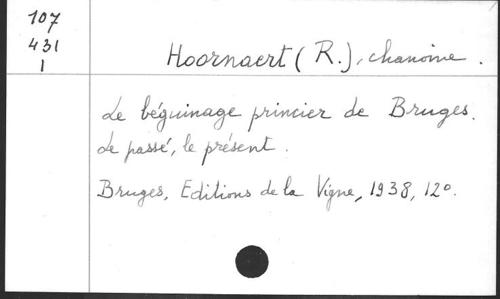 107
431
1
Hoornaert (R.), chanoine.
Le béguinage princier de Bruges.
Le passé, le présent.
Bruges, Editions de la Vigne, 1938, 12°.